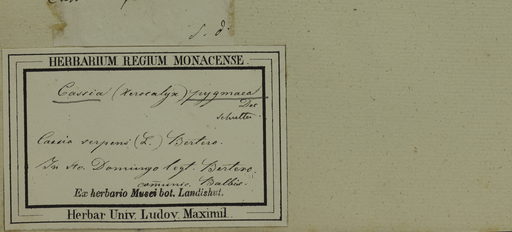 S. d.
HERBARIUM REGIUM MONACENSE.
Cassia (Xerocalyx) pygmaea
Dec
Cassia serpens (L.) Bertero.
In Sto. Domingo legt. Bertero,
communic. Balbis.
Ex herbario Musei bot. Landishut.
Herbar Univ. Ludov. Maximil